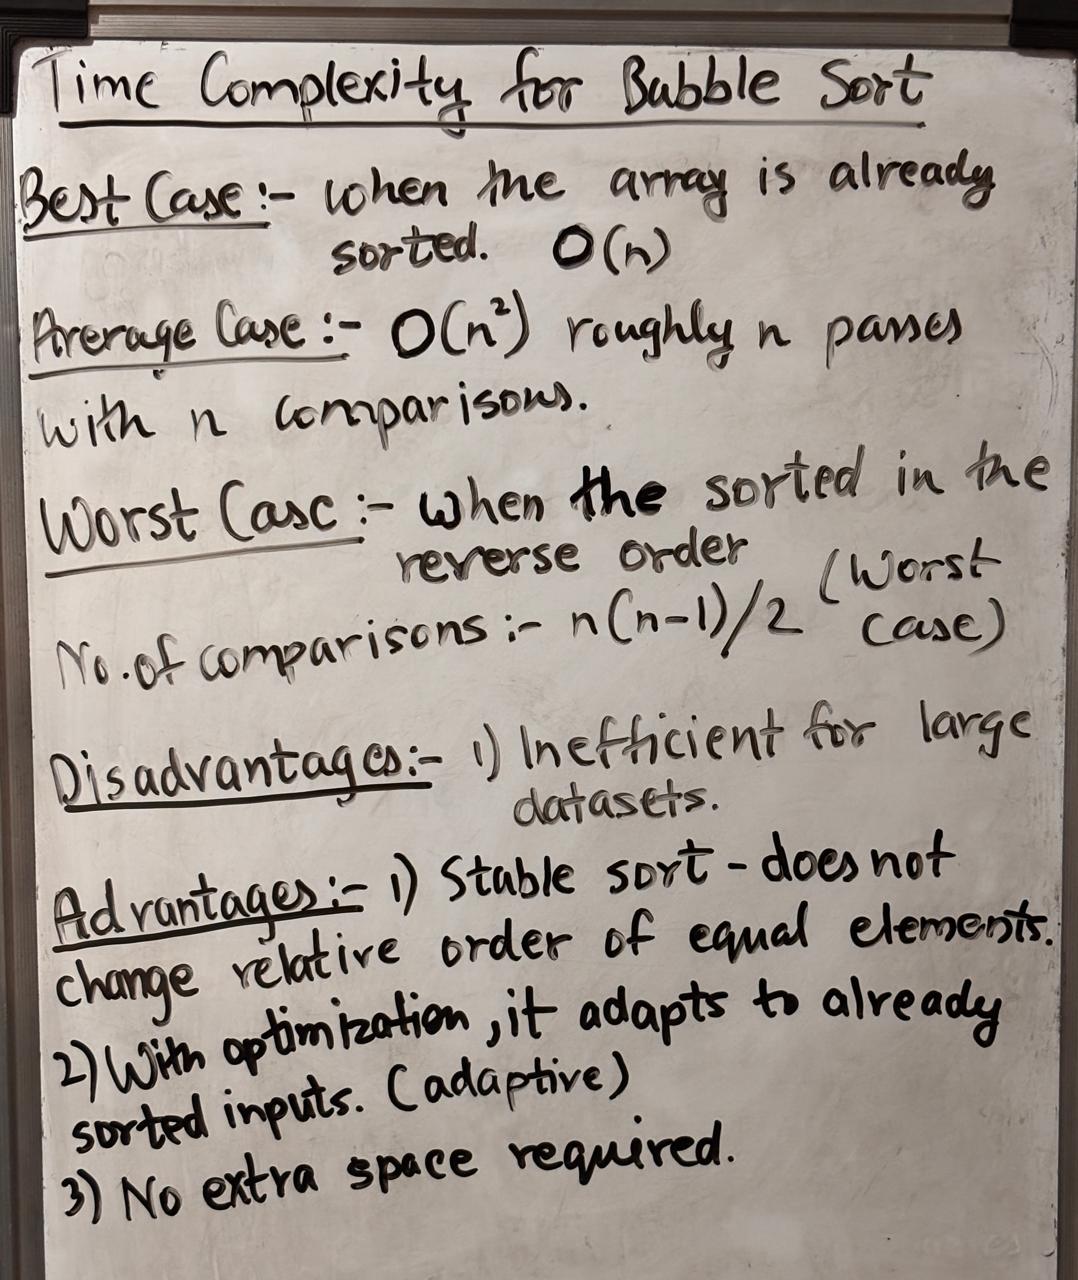 Time Complexity for Bubble Sort
Best Case :- when the array is already
sorted. O(n)
Average Case :- O(n²) roughly n passes
with n comparisons.
Worst Case :- when the sorted in the
reverse order
No. of comparisons :- n(n-1)/2 (Worst
case)
Disadvantages:- 1) Inefficient for large
datasets.
Advantages:- 1) Stable sort - does not
change relative order of equal elements.
2) With optimization, it adapts to already
sorted inputs. (adaptive)
3) No extra space required.